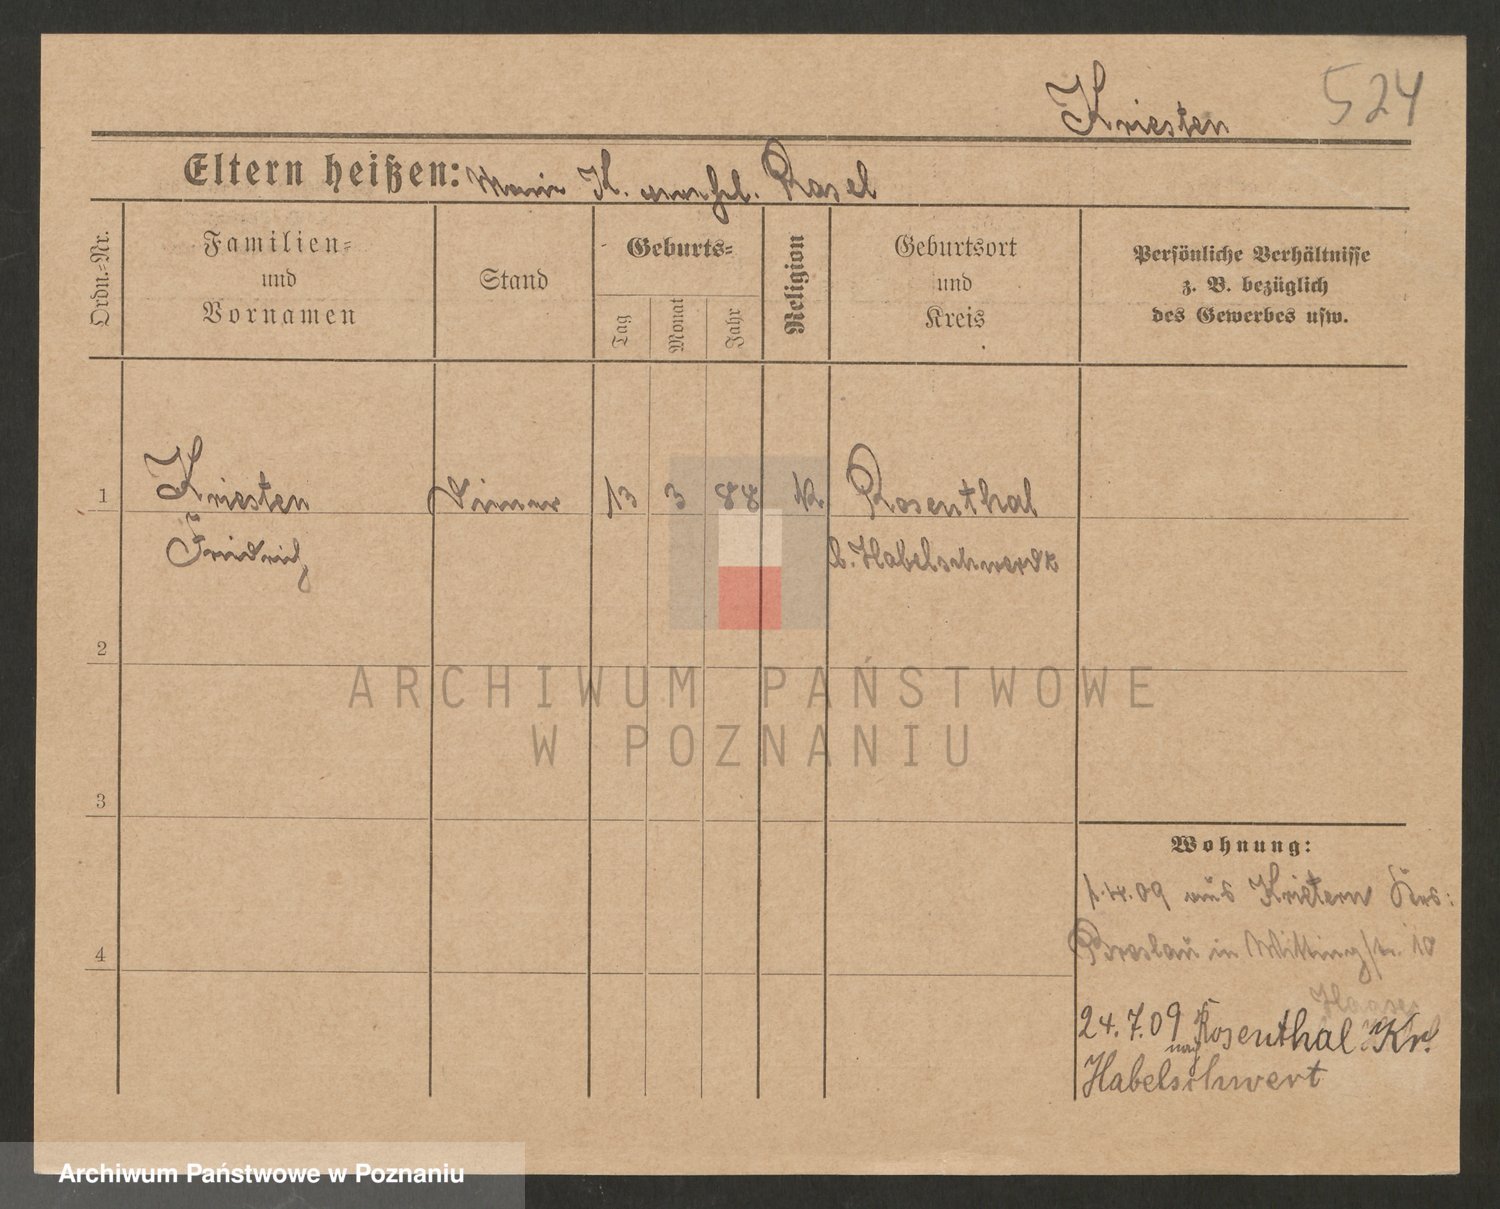 Kriesten 524
Eltern heißen: Marie K. verehl. Rasel
Ordn.-Nr.
Familien-
und
Vornamen
Stand
Geburts-
Tag
Monat
Jahr
Religion
Geburtsort
und
Kreis
Persönliche Verhältnisse
z. B. bezüglich
des Gewerbes usw.
1 Kriesten Diener 13 3 88 K. Rosenthal
Friedrich b. Habelschwerdt
2
ARCHIWUM PAŃSTWOWE
W POZNANIU
3
Wohnung:
1.4.09 aus Krietern Krs:
4
Breslau in Wittingstr. 10
Haase
24.7.09 nach Rosenthal Kr.
Habelschwert
Archiwum Państwowe w Poznaniu